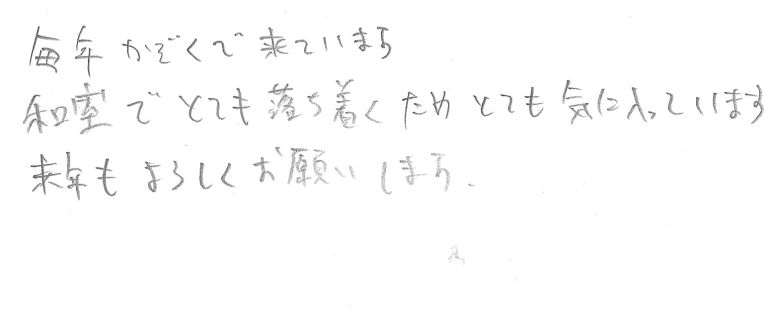 毎年かぞくで来ています
和室でとても落ち着くためとても気に入っています
来年もよろしくお願いします。